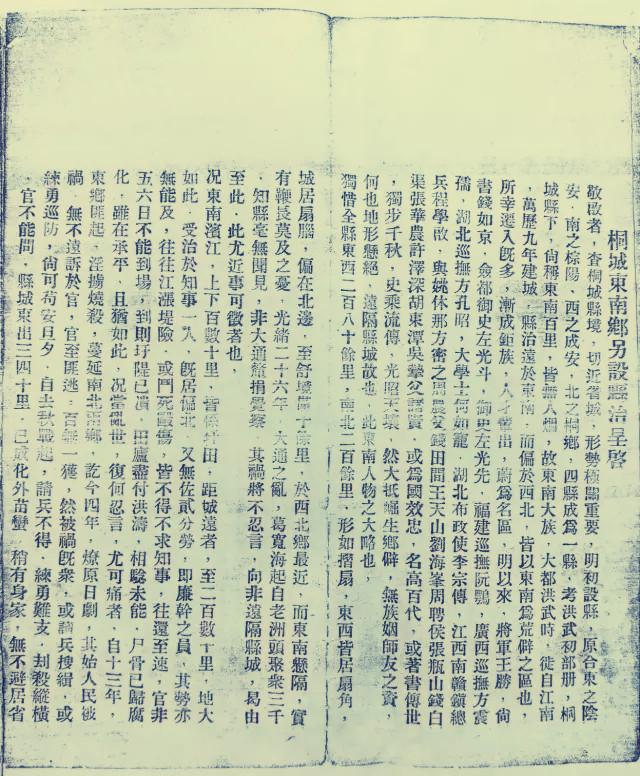 桐城東南鄉另設縣治呈啓
敬啟者，查桐城縣境，切近省城，形勢極關重要，明初設縣，原合東之陰
安，南之樅陽，西之成安，北之桐鄉，四縣成爲一縣，考洪武初部册，桐
城縣下，尙稱東南百里，皆無人烟，故東南大族，大都洪武時，徙自江南
，萬歷九年建城，縣治遠於東南，而偏於西北，皆以東南爲荒僻之區也，
所幸遷入旣多，漸成鉅族，人才輩出，蔚爲名區，明以來，將軍王勝，尙
書錢如京，僉都御史左光斗，御史左光先，福建巡撫阮鶚，廣西巡撫方震
孺，湖北巡撫方孔昭，大學士何如寵，湖北布政使李宗傳，江西南贛鎭總
兵程學啟，與姚休那方密之周農父錢田間王天山劉海峯周聘侯張瓶山錢白
渠張華農許澤深胡東潭吳摯父諸賢，或爲國效忠，名高百代，或著書傳世
，獨步千秋，史乘流傳，光昭天壤，然大抵崛生鄉僻，無族姻師友之資，
何也地形懸絕，遠隔縣城故也，此東南人物之大略也，
獨惜全縣東西二百八十餘里，南北二百餘里，形如摺扇，東西皆居扇角，
城居扇腦，偏在北邊，至舒城僅十餘里，於西北鄉最近，而東南懸隔，實
有鞭長莫及之憂，光緒二十六年，大通之亂，葛寬海起自老洲頭聚衆三千
，知縣毫無聞見，非大通釐捐覺察，其禍將不忍言，向非遠隔縣城，曷由
至此，此尤近事可徵者也，
况東南濱江，上下百數十里，皆係圩田，距城遠者，至二百數十里，地大
如此，受治於知事一人，旣居偏北，又無佐貳分勞，即廉幹之員，其勢亦
無能及，往往江漲堤險，或鬥死毆傷，皆不得不求知事，往還至速，官非
五六日不能到場，到則圩隄已潰，田廬盡付洪濤，相驗未能，尸骨已歸腐
化，雖在承平，且猶如此，况當亂世，復何忍言，尤可痛者，自十三年，
東鄉匪起，淫擄燒殺，蔓延南北兩鄉，訖今四年，燎原日劇，其始人民被
禍，無不遠訴於官，官至匪逃，百無一獲，然被禍旣衆，或請兵搜緝，或
練勇巡防，尙可苟安旦夕，自去秋戰起，請兵不得，練勇難支，刦殺縱橫
，官不能問，縣城東出三四十里，已成化外苗蠻，稍有身家，無不避居省